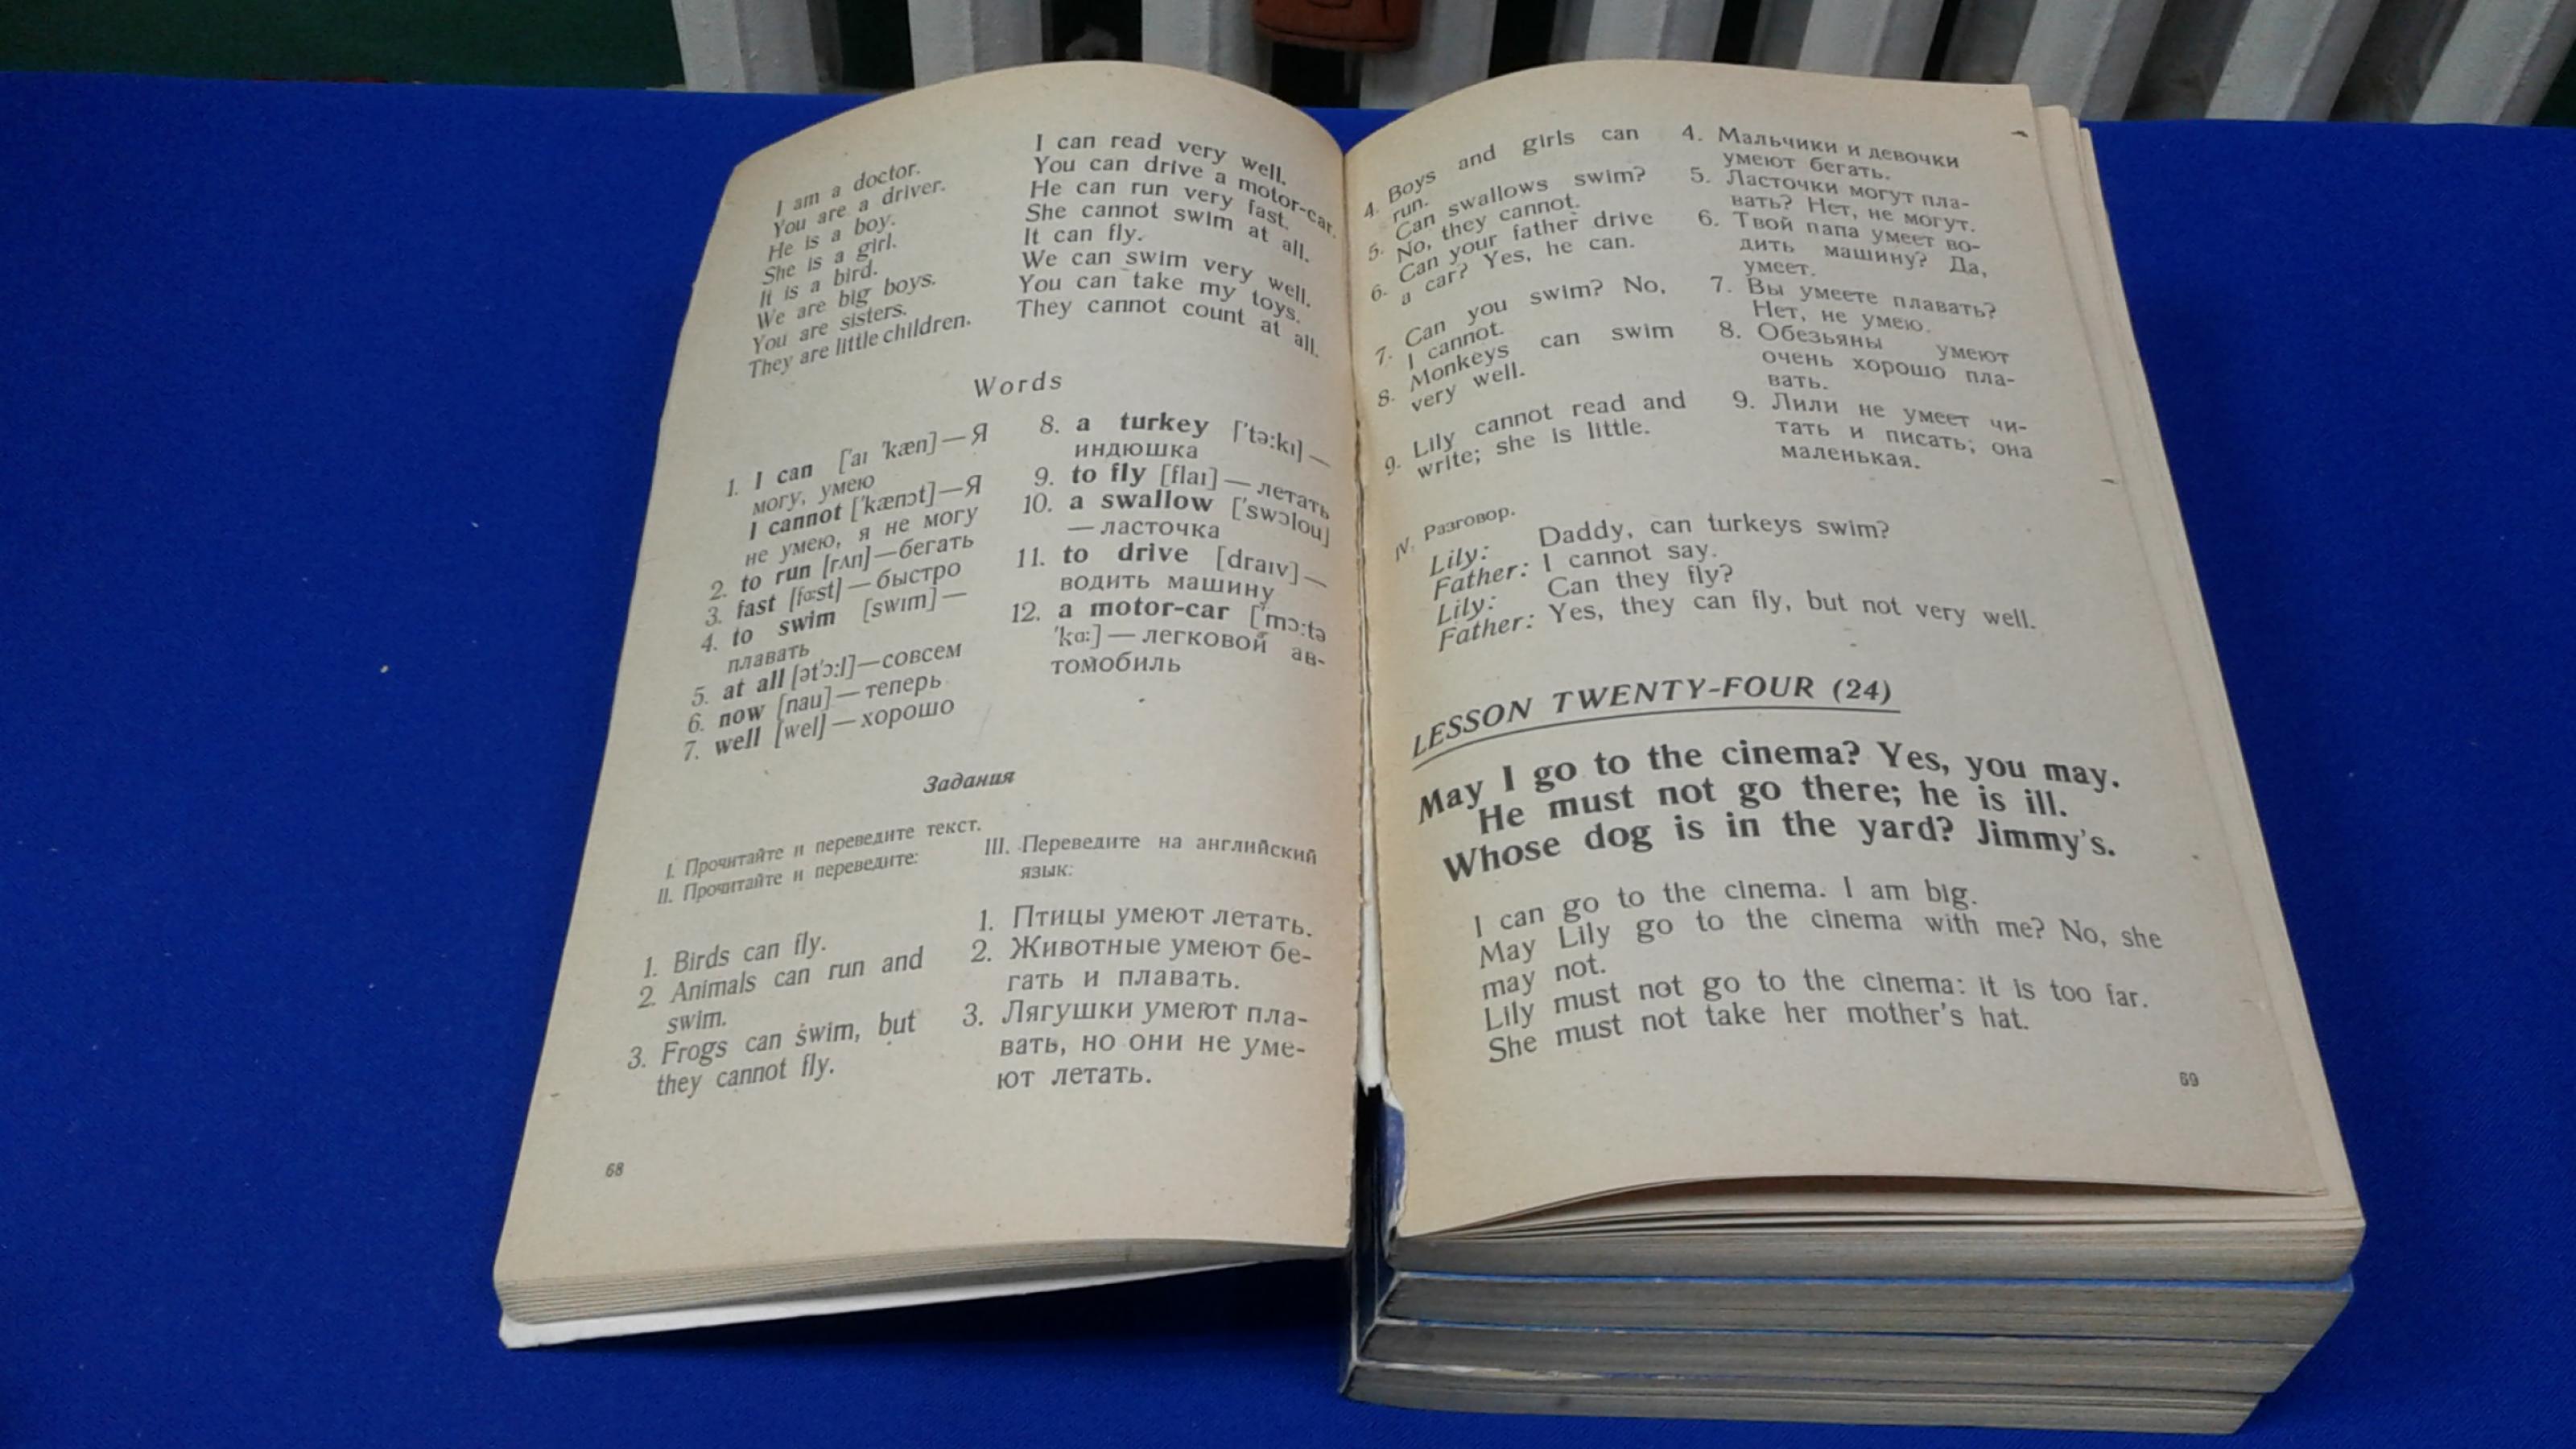 I am a doctor.
You are a driver.
He is a boy.
She is a girl.
It is a bird.
We are big boys.
You are sisters.
They are little children.
I can read very well.
You can drive a motor-car.
He can run very fast.
She cannot swim at all.
It can fly.
We can swim very well.
You can take my toys.
They cannot count at all.
Words
1. I can ['aɪ 'kæn] — Я
могу, умею
I cannot ['kænɔt] — Я
не умею, я не могу
2. to run [rʌn] — бегать
3. fast [fɑ:st] — быстро
4. to swim [swɪm] —
плавать
5. at all [ət'ɔ:l] — совсем
6. now [nau] — теперь
7. well [wel] — хорошо
8. a turkey ['tə:kɪ] —
индюшка
9. to fly [flaɪ] — летать
10. a swallow ['swɔlou]
— ласточка
11. to drive [draɪv] —
водить машину
12. a motor-car ['mɔ:tə
'kɑ:] — легковой ав-
томобиль
Задания
I. Прочитайте и переведите текст.
II. Прочитайте и переведите:
1. Birds can fly.
2. Animals can run and
swim.
3. Frogs can swim, but
they cannot fly.
III. Переведите на английский
язык:
1. Птицы умеют летать.
2. Животные умеют бе-
гать и плавать.
3. Лягушки умеют пла-
вать, но они не уме-
ют летать.
68
4. Boys and girls can
run.
5. Can swallows swim?
No, they cannot.
6. Can your father drive
a car? Yes, he can.
7. Can you swim? No,
I cannot.
8. Monkeys can swim
very well.
9. Lily cannot read and
write; she is little.
4. Мальчики и девочки
умеют бегать.
5. Ласточки могут пла-
вать? Нет, не могут.
6. Твой папа умеет во-
дить машину? Да,
умеет.
7. Вы умеете плавать?
Нет, не умею.
8. Обезьяны умеют
очень хорошо пла-
вать.
9. Лили не умеет чи-
тать и писать; она
маленькая.
IV. Разговор.
Lily: Daddy, can turkeys swim?
Father: I cannot say.
Lily: Can they fly?
Father: Yes, they can fly, but not very well.
LESSON TWENTY-FOUR (24)
May I go to the cinema? Yes, you may.
He must not go there; he is ill.
Whose dog is in the yard? Jimmy's.
I can go to the cinema. I am big.
May Lily go to the cinema with me? No, she
may not.
Lily must not go to the cinema: it is too far.
She must not take her mother's hat.
69